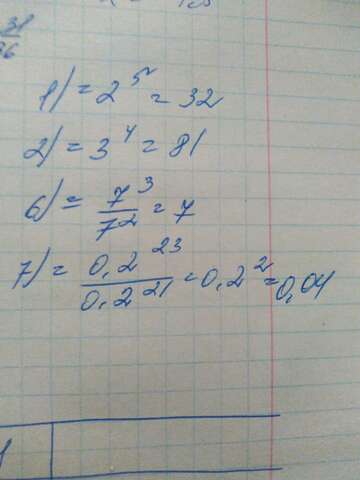 31
1) = 2⁵ = 32
2) = 3⁴ = 81
6) = 7³/7² = 7
7) = 0,2²³/0,2²¹ = 0,2² = 0,04